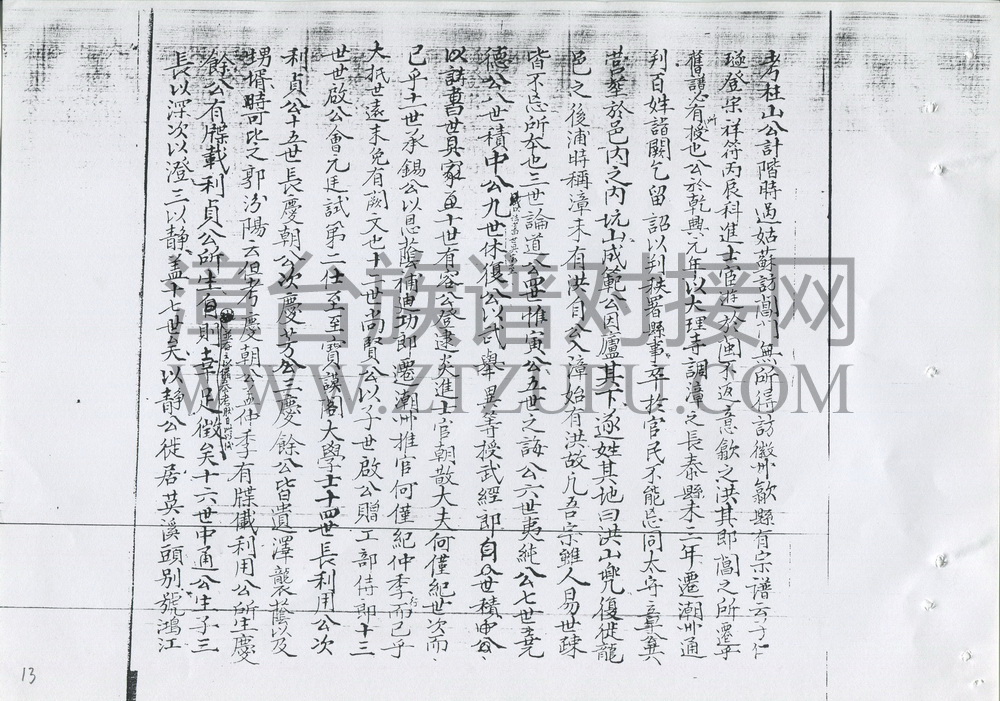 考杜山公計階時過姑蘇訪閶門無所得訪徽州歙縣有宗譜云子仁
璲登宋祥符丙辰科進士宦遊於閩不返意歙之洪其即閶之所遷乎
舊譜必有所授也公於乾興元年以大理寺調漳之長泰縣未二年遷潮州通
判百姓詣闕乞留詔以判秩署縣事卒於官民不能忘同太守章與
營塟於邑內之內坑山成範公因廬其下遂姓其地曰洪山兠復徙龍
邑之後浦時稱漳未有洪自公入漳始有洪故凡吾宗雖人易世疎
皆不忘所本也三世論道公四世惟寅公五世之誨公六世夷純公七世堯
德公八世積中公九世休復公以武舉異等授武經郎自八世積中公
以詩書世其家至十世有容公登建炎進士官朝散大夫何僅紀世次而
已乎十一世承錫公以恩蔭補迪功郎遷潮州推官何僅紀仲季而已乎
大抵世遠未免有闕文也十二世尚賢公以子世啟公贈工部侍郎十三
世世啟公會元廷試第二仕至至寶謨閣大學士十四世長利用公次
利貞公十五世長慶朝公次慶芳公三慶餘公皆遺澤襲蔭以及
甥壻時可比之郭汾陽云但考慶朝公仲季有牒儎利用公所生慶
餘公有牒載利貞公所生自則幸足徵矣十六世中通公生子三
長以深次以澄三以静盖十七世矣以静公徙居英溪頭別號鴻江
漳台族谱对接网
WWW.ZTZUPU.COM
13